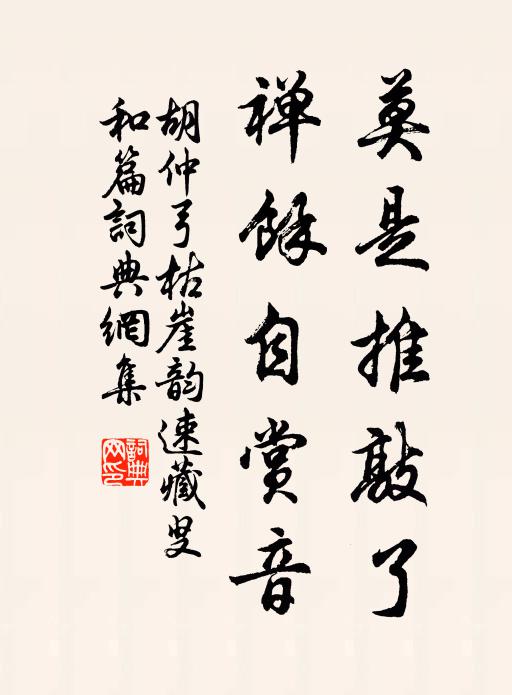 莫是推敲了
禅餘自赏音
胡仲弓枯崖韵速藏叟
和篇詞典網集
詞典
网印